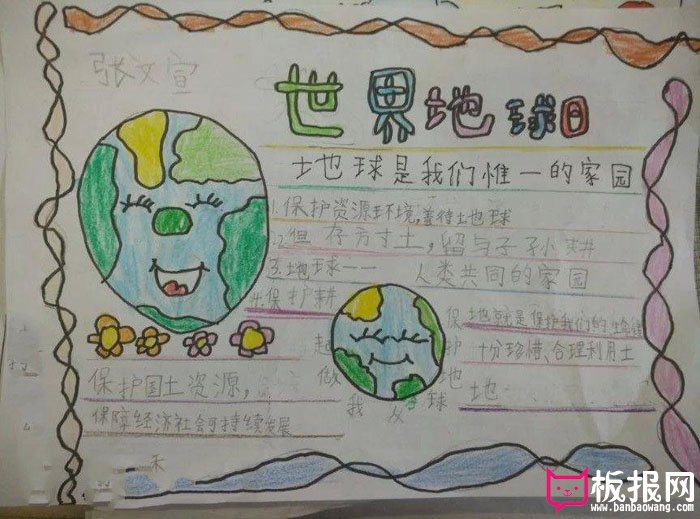 张文宣
世界地球日
地球是我们惟一的家园
1.保护资源环境,善待土地地球
2.但存方寸土,留与子子孙耕
3.地球一一 人类共同的家园
4.保护耕
地就是保护我们的生命线
十分珍惜、合理利用土
地
保护地球
做
我
保护国土资源,
保障经济社会可持续发展
板报网
www.banbaowang.com